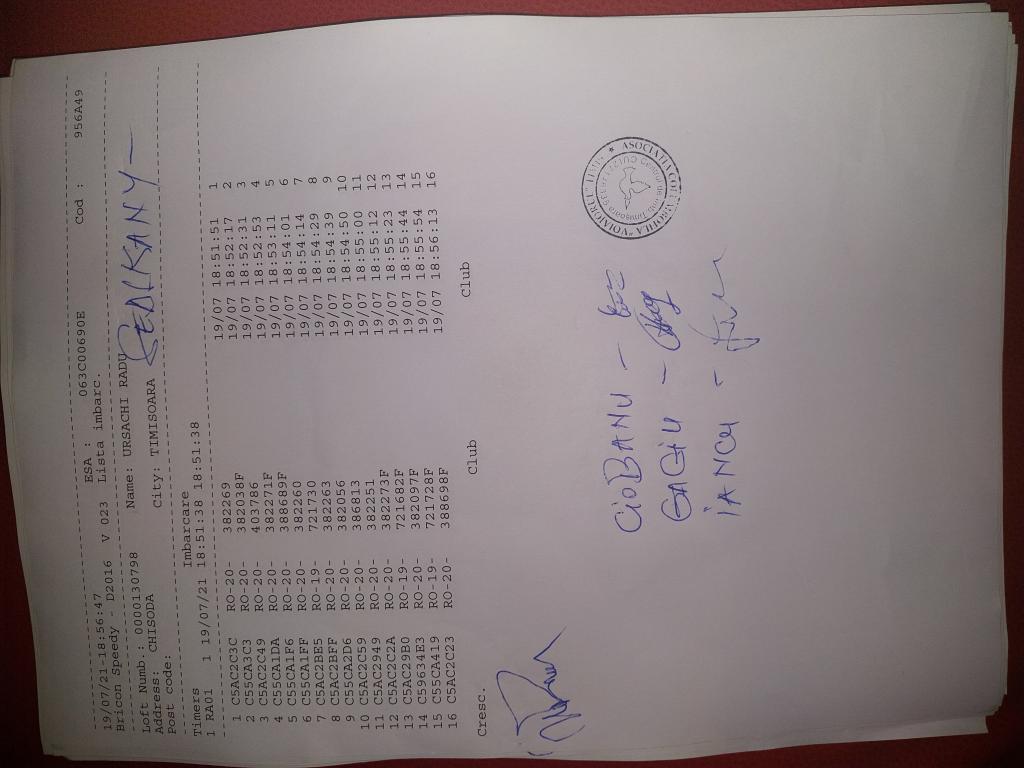 19/07/21-18:56:47 ESA : 063C00690E Cod : 956A49
Bricon Speedy - D2016 V 023 Lista imbarc.
Loft Numb : 0000130798 Name: URSACHI RADU
Address: CHISODA City: TIMISOARA
Post code:
Timers Imbarcare
1 RA01 1 19/07/21 18:51:38 18:51:38
1 C5AC2C3C RO-20- 382269 19/07 18:51:51 1
2 C55CA3C3 RO-20- 382038F 19/07 18:52:17 2
3 C5AC2C49 RO-20- 403786 19/07 18:52:31 3
4 C55CA1DA RO-20- 382271F 19/07 18:52:53 4
5 C55CA1F6 RO-20- 388689F 19/07 18:53:11 5
6 C55CA1FF RO-20- 382260 19/07 18:54:01 6
7 C5AC2BE5 RO-19- 721730 19/07 18:54:14 7
8 C5AC2BFF RO-20- 382263 19/07 18:54:29 8
9 C55CA2D6 RO-20- 382056 19/07 18:54:39 9
10 C5AC2C59 RO-20- 386813 19/07 18:54:50 10
11 C5AC2949 RO-20- 382251 19/07 18:55:00 11
12 C5AC2C2A RO-20- 382273F 19/07 18:55:12 12
13 C5AC29B0 RO-19- 721682F 19/07 18:55:23 13
14 C59634E3 RO-20- 382097F 19/07 18:55:44 14
15 C55CA419 RO-19- 721728F 19/07 18:55:54 15
16 C5AC2C23 RO-20- 388698F 19/07 18:56:13 16
Cresc. Club Club
CIOBANU -
GAGIU -
IANCU -
ASOCIATIA COL